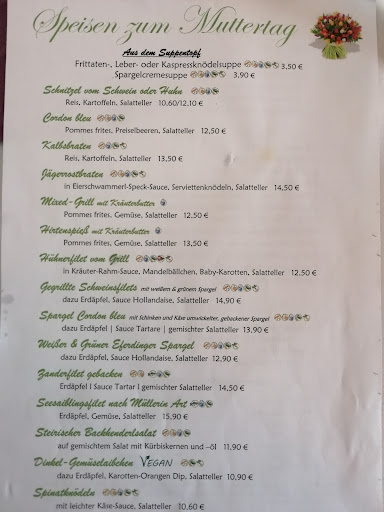 Speisen zum Muttertag
Aus dem Suppentopf
Frittaten-, Leber- oder Kaspressknödelsuppe 3,50 €
Spargelcremesuppe 3,90 €
Schnitzel vom Schwein oder Huhn
Reis, Kartoffeln, Salatteller 10,60/12,10 €
Cordon bleu
Pommes frites, Preiselbeeren, Salatteller 12,50 €
Kalbsbraten
Reis, Kartoffeln, Salatteller 13,50 €
Jägerrostbraten
in Eierschwammerl-Speck-Sauce, Serviettenknödeln, Salatteller 14,50 €
Mixed-Grill mit Kräuterbutter
Pommes frites, Gemüse, Salatteller 12,50 €
Hirtenspieß mit Kräuterbutter
Pommes frites, Gemüse, Salatteller 13,50 €
Hühnerfilet vom Grill
in Kräuter-Rahm-Sauce, Mandelbällchen, Baby-Karotten, Salatteller 12,50 €
Gegrillte Schweinsfilets mit weißem & grünem Spargel
dazu Erdäpfel, Sauce Hollandaise, Salatteller 14,90 €
Spargel Cordon bleu mit Schinken und Käse umwickelter, gebackener Spargel
dazu Erdäpfel | Sauce Tartare | gemischter Salatteller 13,90 €
Weißer & Grüner Eferdinger Spargel
dazu Erdäpfel, Sauce Hollandaise, Salatteller 12,90 €
Zanderfilet gebacken
Erdäpfel I Sauce Tartar I gemischter Salatteller 14,50 €
Seesaiblingsfilet nach Müllerin Art
Erdäpfel, Gemüse, Salatteller 15,90 €
Steirischer Backhenderlsalat
auf gemischtem Salat mit Kürbiskernen und -öl 11,90 €
Dinkel-Gemüselaibchen VEGAN
dazu Erdäpfel, Karotten-Orangen Dip, Salatteller 10,90 €
Spinatknödeln
mit leichter Käse-Sauce, Salatteller 10,60 €